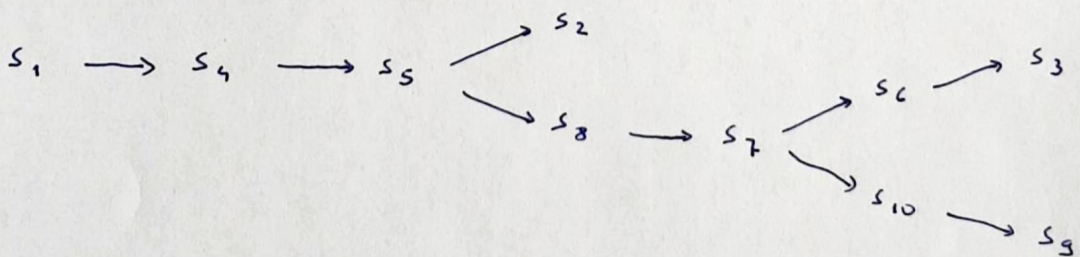 S₁ → S₄ → S₅ → S₂
S₅ → S₈ → S₇ → S₆ → S₃
S₇ → S₁₀ → S₉